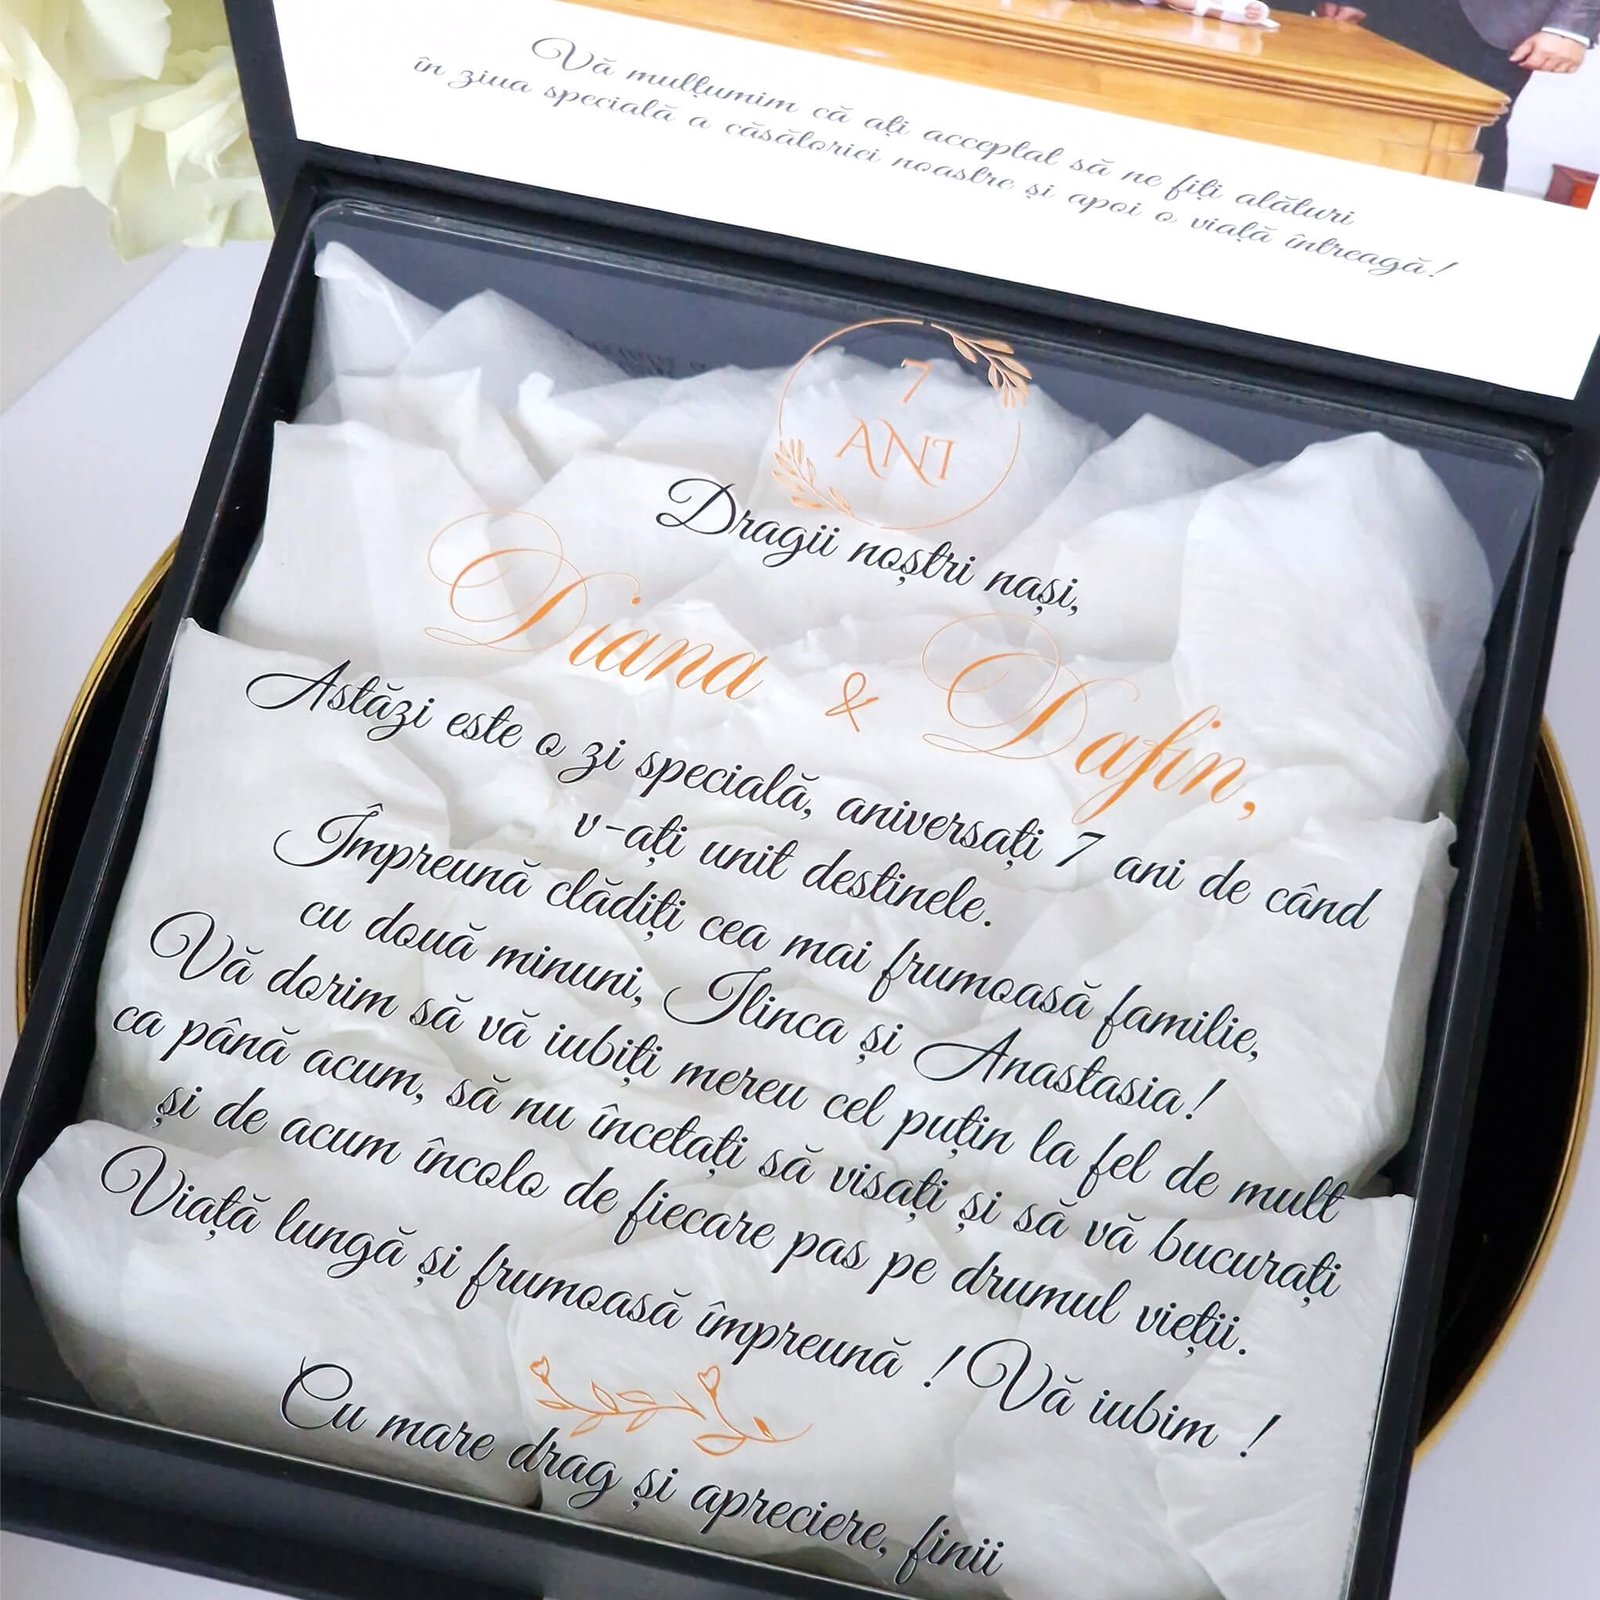 Vă mulțumim că ați acceptat să ne fiți alături
în ziua specială a căsătoriei noastre și apoi o viață întreagă!
7
ANI
Dragii noștri nași,
Diana & Dafin,
Astăzi este o zi specială, aniversați 7 ani de când
v-ați unit destinele.
Împreună clădiți cea mai frumoasă familie,
cu două minuni, Ilinca și Anastasia!
Vă dorim să vă iubiți mereu cel puțin la fel de mult
ca până acum, să nu încetați să visați și să vă bucurați
și de acum încolo de fiecare pas pe drumul vieții.
Viață lungă și frumoasă împreună ! Vă iubim !
Cu mare drag și apreciere, finii